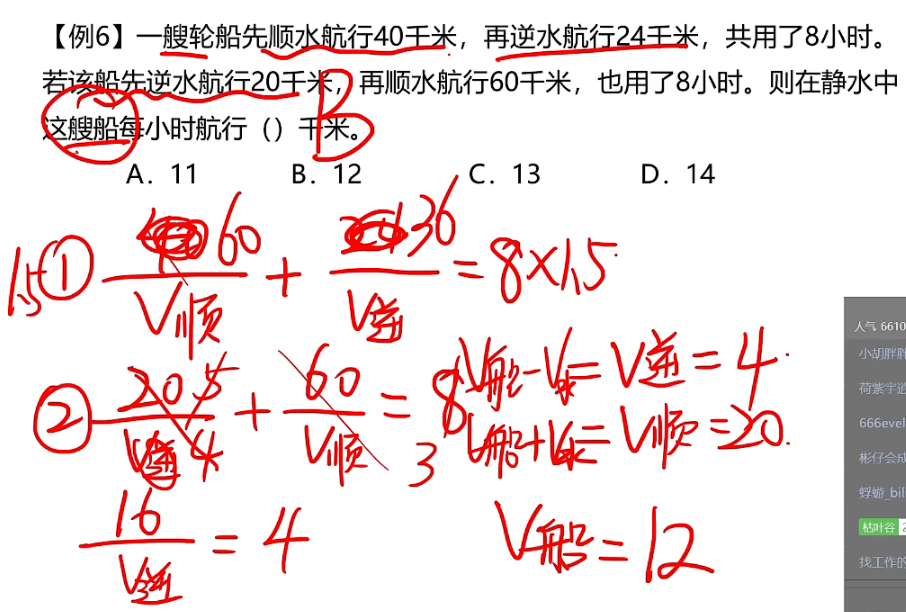 【例6】一艘轮船先顺水航行40千米，再逆水航行24千米，共用了8小时。
若该船先逆水航行20千米，再顺水航行60千米，也用了8小时。则在静水中
这艘船每小时航行（）千米。
B
A. 11 B. 12 C. 13 D. 14
1.5① 60/V顺 + 36/V逆 = 8×1.5
② 20/V逆 + 60/V顺 = 8
5
4
3
V船-V水=V逆=4
V船+V水=V顺=20
16/V逆 = 4
V船=12
人气 6610
小胡胖胖
荷紫宇逍
666evel
彬仔会成
蜉蝣_bil
枯叶谷 2
找工作的